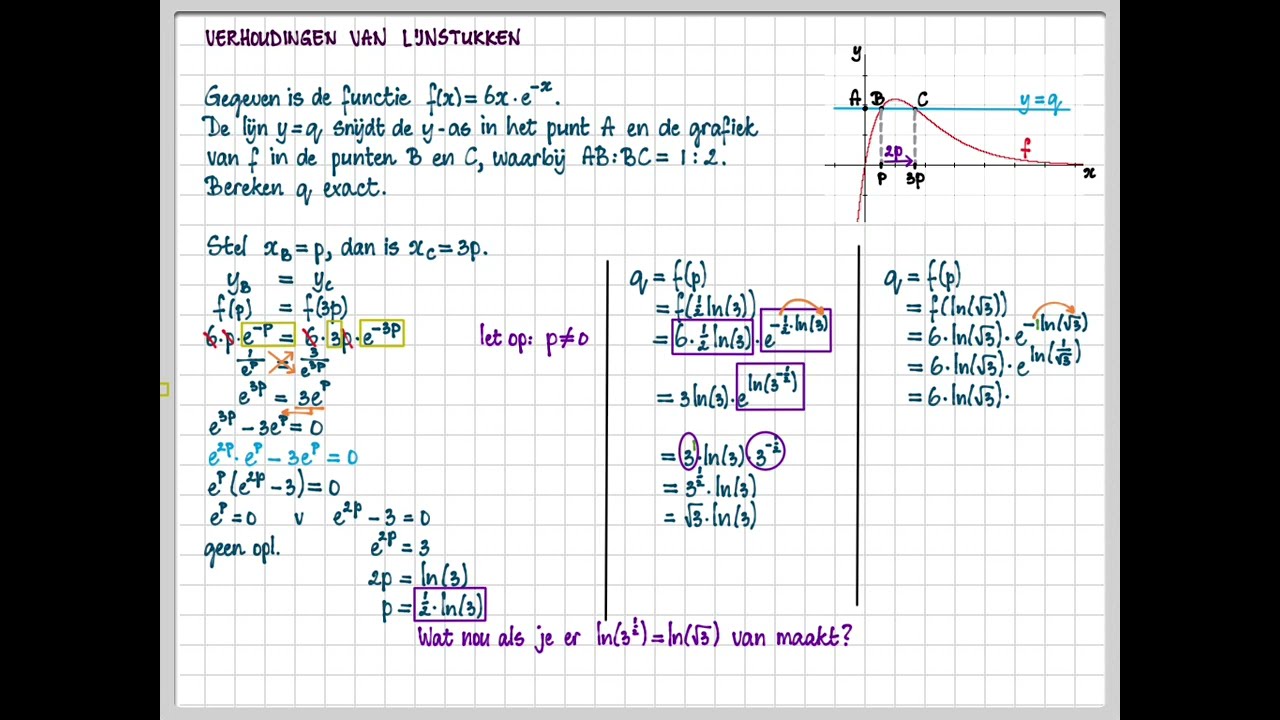 VERHOUDINGEN VAN LIJNSTUKKEN
Gegeven is de functie f(x) = 6x · e^{-x}.
De lijn y = q snijdt de y-as in het punt A en de grafiek
van f in de punten B en C, waarbij AB : BC = 1 : 2.
Bereken q exact.
y
A B C y = q
2p f
P 3p x
Stel x_B = p, dan is x_C = 3p.
y_B = y_C
f(p) = f(3p)
6 · p · e^{-p} = 6 · 3p · e^{-3p}
let op: p ≠ 0
1/e^p = 3/e^{3p}
e^{3p} = 3e^p
e^{3p} - 3e^p = 0
e^{2p} · e^p - 3e^p = 0
e^p (e^{2p} - 3) = 0
e^p = 0 v e^{2p} - 3 = 0
geen opl. e^{2p} = 3
2p = ln(3)
p = ½ · ln(3)
q = f(p)
= f(½ ln(3))
= 6 · ½ ln(3) · e^{-½ · ln(3)}
= 3 ln(3) · e^{ln(3^{-½})}
= 3^1 · ln(3) · 3^{-½}
= 3^{½} · ln(3)
= √3 · ln(3)
q = f(p)
= f(ln(√3))
= 6 · ln(√3) · e^{-1ln(√3)}
= 6 · ln(√3) · e^{ln(1/√3)}
= 6 · ln(√3) ·
Wat nou als je er ln(3^{½}) = ln(√3) van maakt?